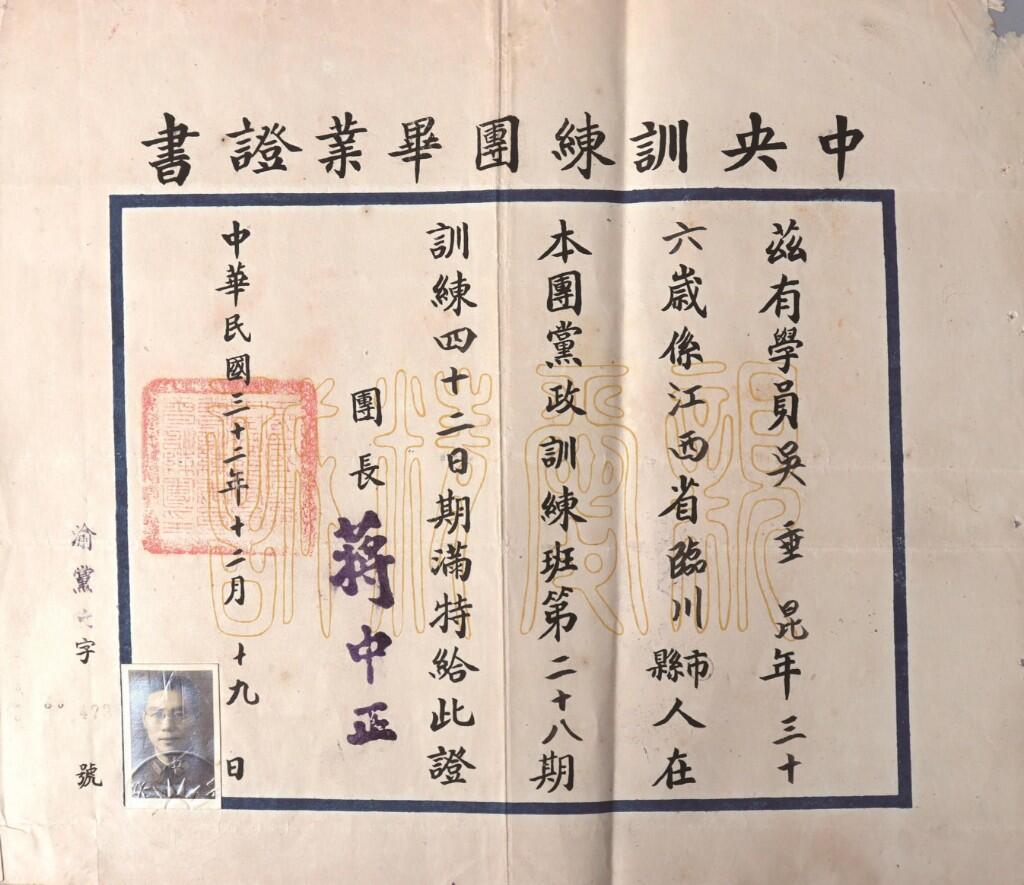 中央訓練團畢業證書
茲有學員吳垂昆年三十
六歲係江西省臨川縣市人在
本團黨政訓練班第二十八期
訓練四十二日期滿特給此證
團長蔣中正
中華民國三十二年十二月十九日
渝黨字號